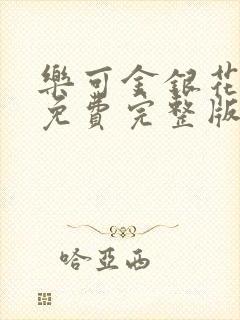 樂可金銀花
免費完整版
哈亞西